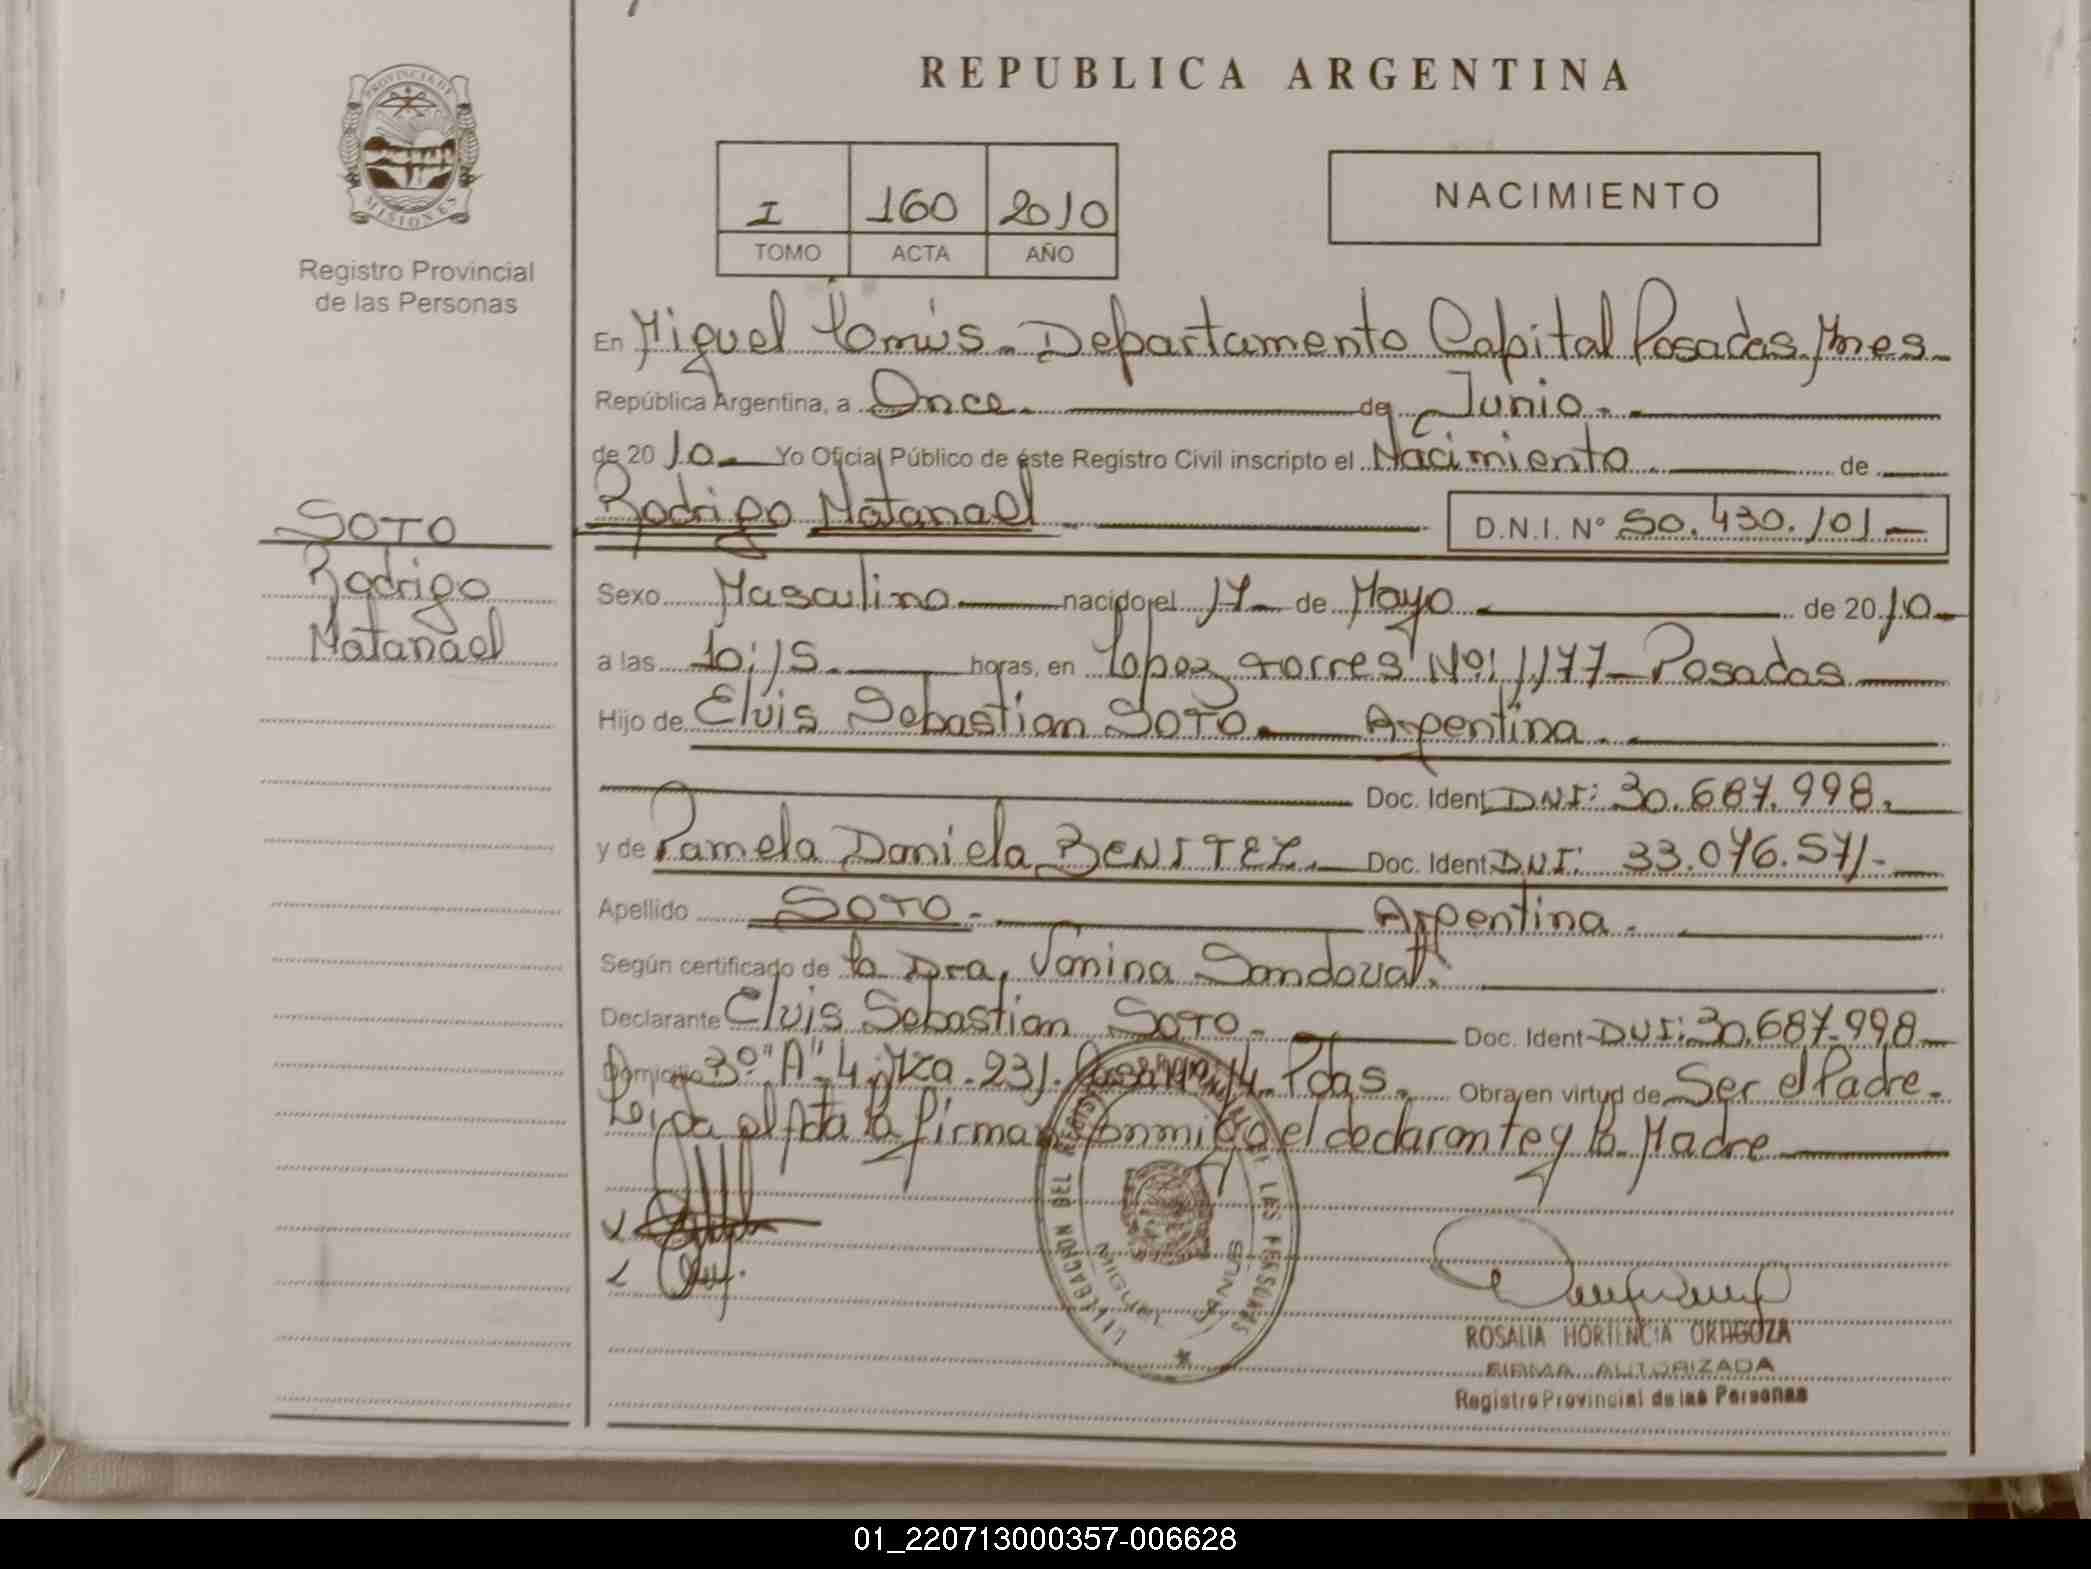 REPUBLICA ARGENTINA
PROVINCIA DE MISIONES
Registro Provincial
de las Personas
I 160 2010
TOMO ACTA AÑO
NACIMIENTO
En Miguel Lanús.- Departamento Capital Posadas, Mnes.-
República Argentina, a Once. de Junio.-
de 2010.- Yo Oficial Público de éste Registro Civil inscripto el Nacimiento de
Rodrigo Natanael.- D.N.I. N° 50.430.101.-
SOTO
Rodrigo
Natanael
Sexo Masculino nacido el 17 de Mayo de 2010.-
a las 10:15. horas, en López Torres Nº: 1177- Posadas
Hijo de Elvis Sebastian SOTO. Argentina.
Doc. Ident. DNI: 30.687.998.
y de Pamela Daniela BENITEZ.- Doc. Ident. DNI: 33.076.571.-
Apellido SOTO.- Argentina.
Según certificado de la Dra, Vanina Sandoval.
Declarante Elvis Sebastian SOTO.- Doc. Ident. DNI: 30.687.998
Domicilio 3º "A" 4. Mza. 231. Pdas. Obra en virtud de Ser el Padre.-
Leida el Acta la firman conmigo el declarante y la Madre
DELEGACION DEL REGISTRO DE LAS PERSONAS
MIGUEL LANUS
ROSALIA HORTENCIA ORAGOZA
FIRMA AUTORIZADA
Registro Provincial de las Personas
01_220713000357-006628